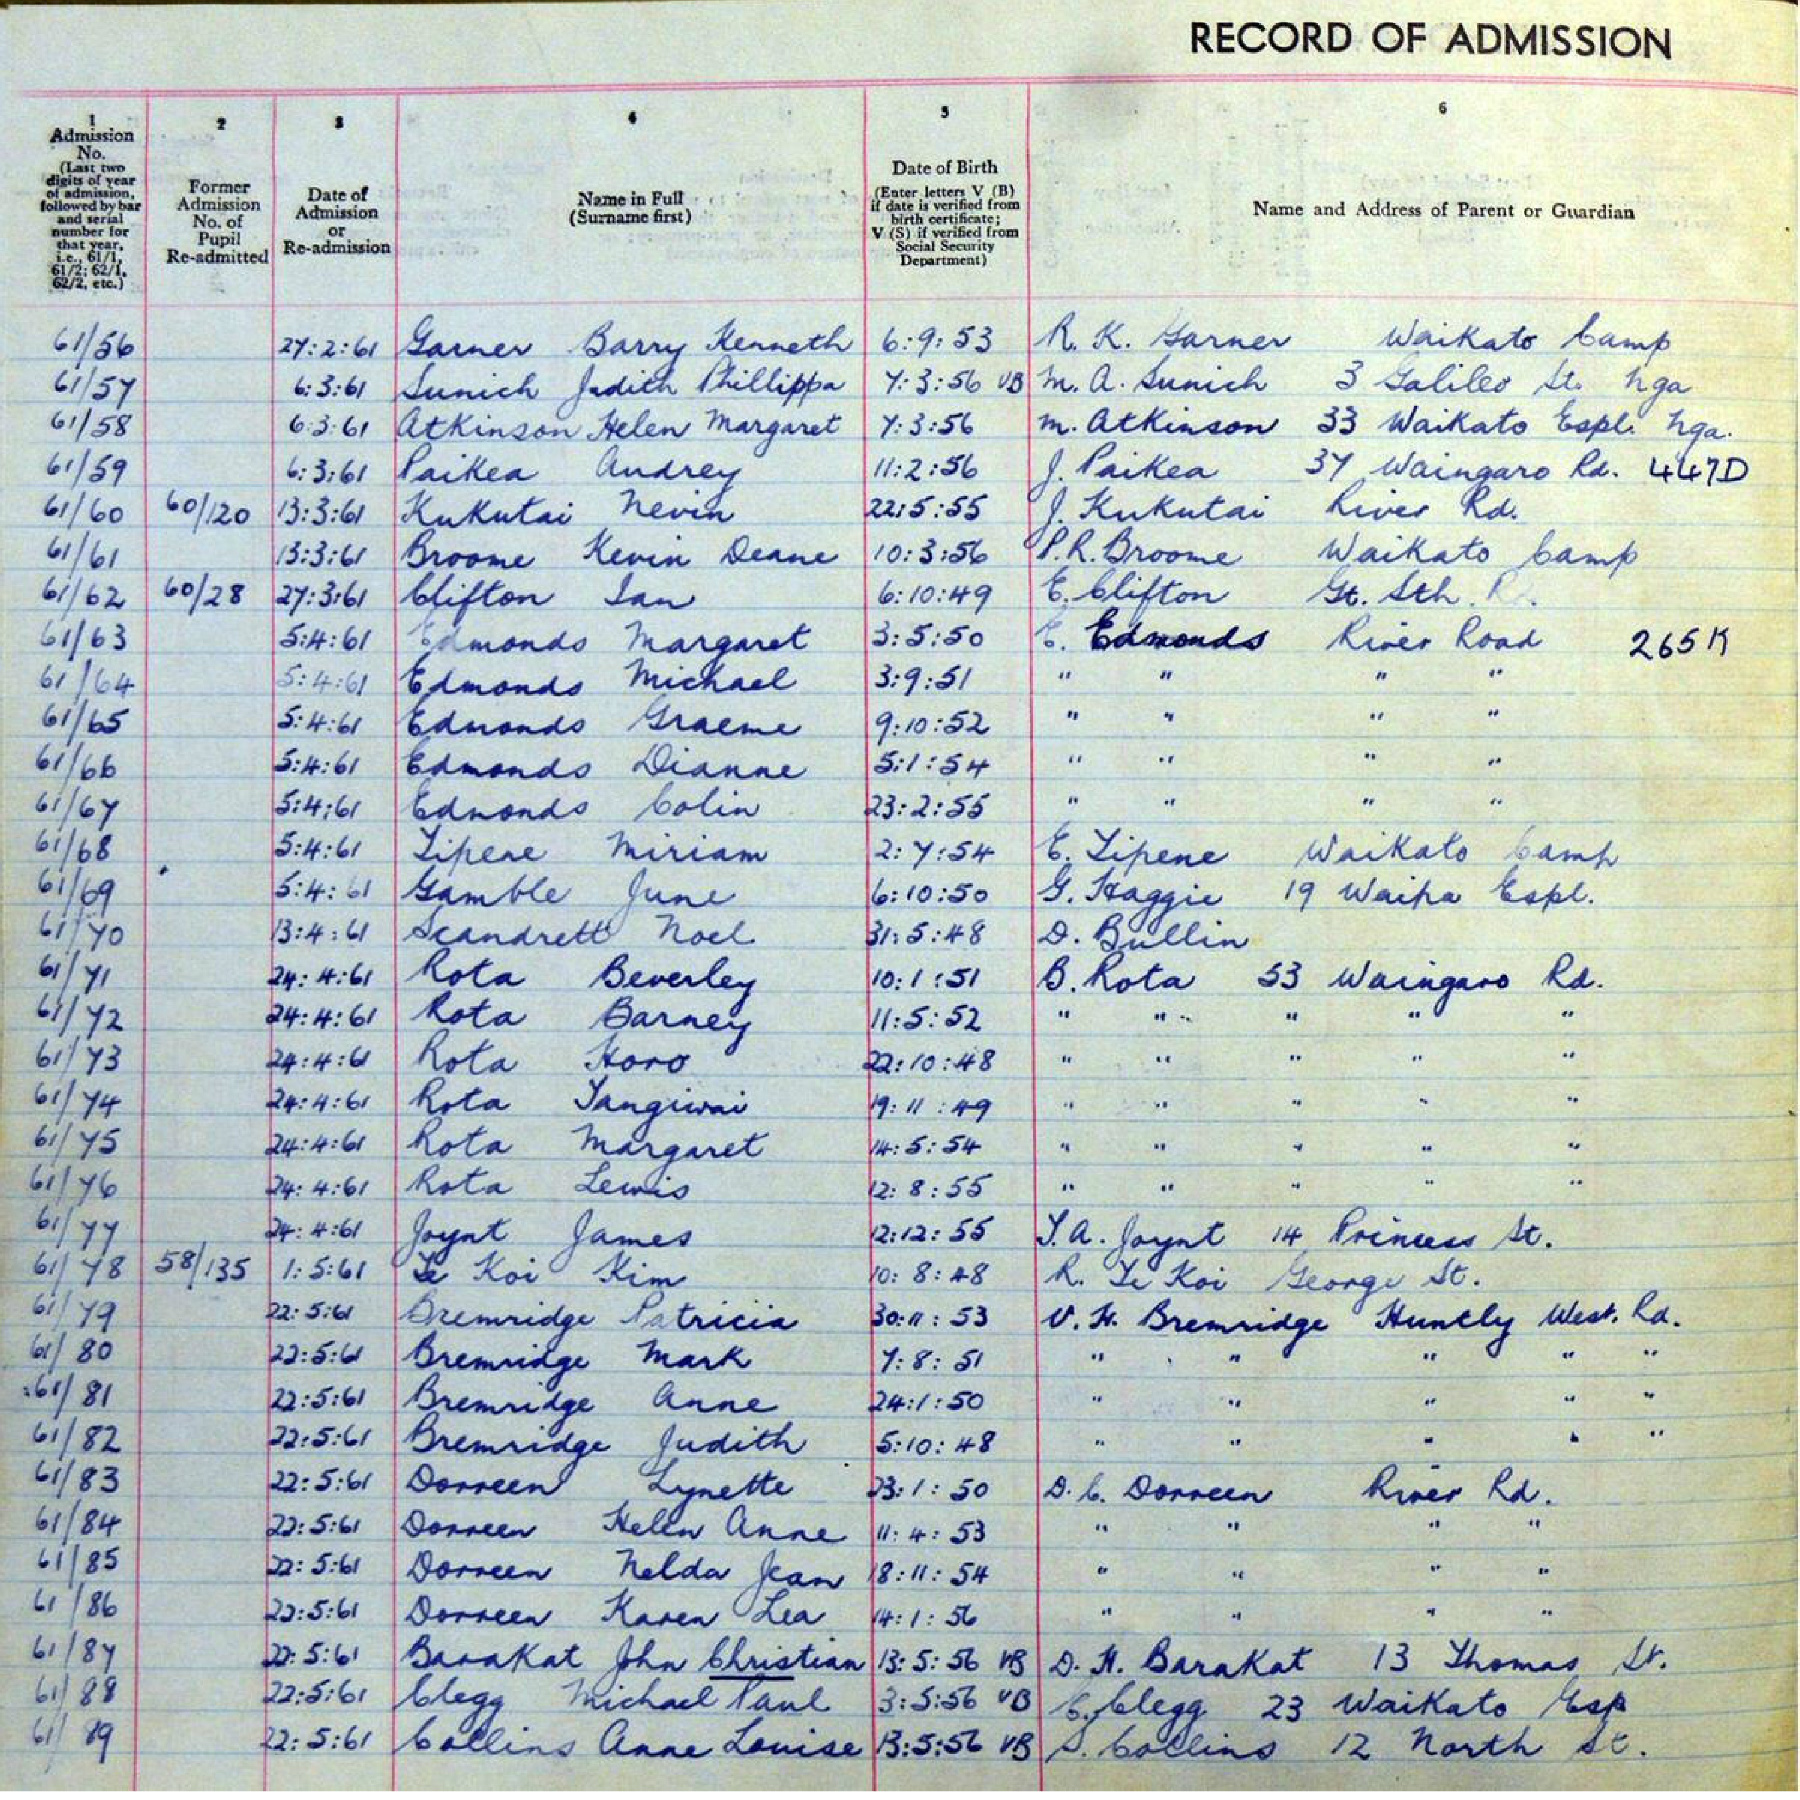 RECORD OF ADMISSION
1 2 3 4 5 6
Admission No. (Last two digits of year of admission, followed by bar and serial number for that year, i.e., 61/1, 61/2; 62/1, 62/2, etc.)
Former Admission No. of Pupil Re-admitted
Date of Admission or Re-admission
Name in Full (Surname first)
Date of Birth (Enter letters V (B) if date is verified from birth certificate; V (S) if verified from Social Security Department)
Name and Address of Parent or Guardian
61/56 27:2:61 Garner Barry Kenneth 6:9:53 R. K. Garner Waikato Camp
61/57 6:3:61 Sunich Judith Phillippa 7:3:56 VB M. A. Sunich 3 Galileo St. Nga
61/58 6:3:61 Atkinson Helen Margaret 7:3:56 M. Atkinson 33 Waikato Espl. Nga.
61/59 6:3:61 Paikea Audrey 11:2:56 J. Paikea 37 Waingaro Rd. 447D
61/60 60/120 13:3:61 Kukutai Nevin 22:5:55 J. Kukutai River Rd.
61/61 13:3:61 Broome Kevin Deane 10:3:56 P.R. Broome Waikato Camp
61/62 60/28 27:3:61 Clifton Ian 6:10:49 E. Clifton Gt. Sth. Rd.
61/63 5:4:61 Edmonds Margaret 3:5:50 E. Edmonds River Road 265K
61/64 5:4:61 Edmonds Michael 3:9:51 " " " "
61/65 5:4:61 Edmonds Graeme 9:10:52 " " " "
61/66 5:4:61 Edmonds Dianne 5:1:54 " " " "
61/67 5:4:61 Edmonds Colin 23:2:55 " " " "
61/68 5:4:61 Tipene Miriam 2:7:54 E. Tipene Waikato Camp
61/69 5:4:61 Gamble June 6:10:50 G. Haggie 19 Waipa Espl.
61/70 13:4:61 Scandrett Noel 31:5:48 D. Bullin
61/71 24:4:61 Rota Beverley 10:1:51 B. Rota 53 Waingaro Rd.
61/72 24:4:61 Rota Barney 11:5:52 " " " " "
61/73 24:4:61 Rota Horo 22:10:48 " " " " "
61/74 24:4:61 Rota Tangiwai 19:11:49 " " " " "
61/75 24:4:61 Rota Margaret 14:5:54 " " " " "
61/76 24:4:61 Rota Lewis 12:8:55 " " " " "
61/77 24:4:61 Joynt James 12:12:55 T.A. Joynt 14 Princess St.
61/78 58/135 1:5:61 Te Koi Kim 10:8:48 R. Te Koi George St.
61/79 22:5:61 Bremridge Patricia 30:11:53 V. H. Bremridge Huntly West. Rd.
61/80 22:5:61 Bremridge Mark 7:8:51 " " " " "
61/81 22:5:61 Bremridge Anne 24:1:50 " " " " "
61/82 22:5:61 Bremridge Judith 5:10:48 " " " " "
61/83 22:5:61 Dorreen Lynette 23:1:50 D. C. Dorreen River Rd.
61/84 22:5:61 Dorreen Helen Anne 11:4:53 " " " "
61/85 22:5:61 Dorreen Nelda Jean 18:11:54 " " " "
61/86 22:5:61 Dorreen Karen Lea 14:1:56 " " " "
61/87 22:5:61 Barakat John Christian 13:5:56 VB D. H. Barakat 13 Thomas St.
61/88 22:5:61 Clegg Michael Paul 3:5:56 VB C. Clegg 23 Waikato Esp
61/89 22:5:61 Collins Anne Louise 13:5:56 VB S. Collins 12 North St.